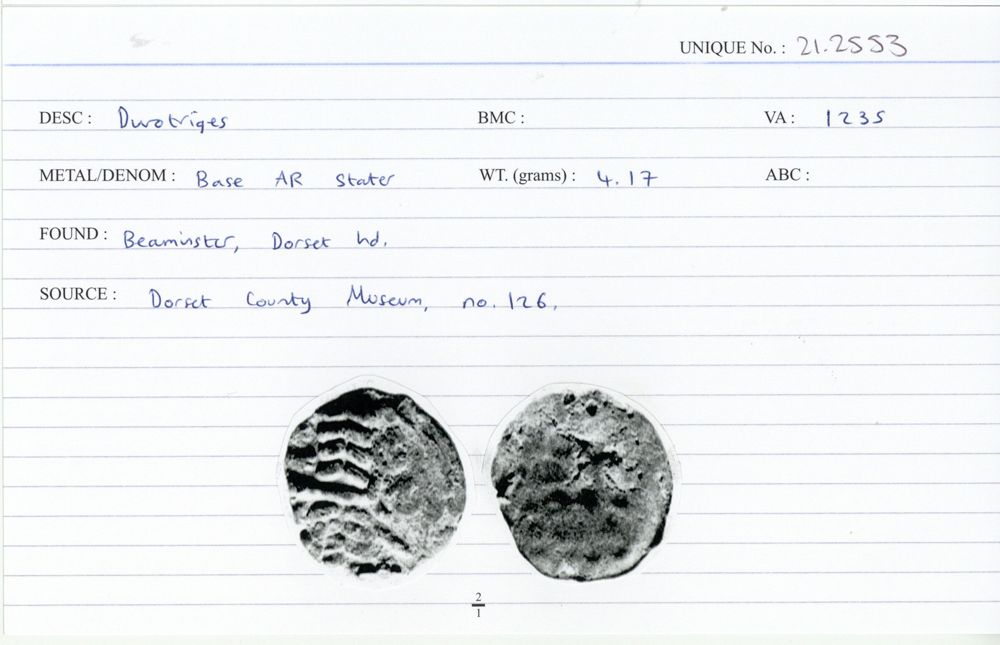 UNIQUE No. : 21.2553
DESC : Durotriges BMC : VA : 1235
METAL/DENOM : Base AR Stater WT. (grams) : 4.17 ABC :
FOUND : Beaminster, Dorset hd.
SOURCE : Dorset County Museum, no. 126.
2
1